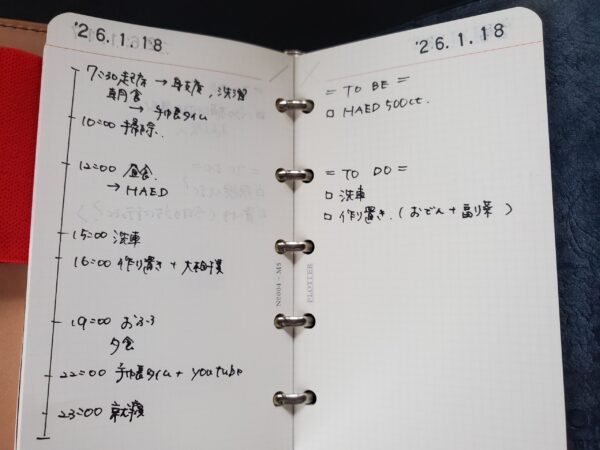 '26.1.18
7:30 起床 → 身支度、洗濯
朝食
→ 手帳タイム
10:00 掃除.
12:00 昼食
→ HAED
15:00 洗車
16:00 作り置き + 大相撲
19:00 おふろ
夕食
22:00 手帳タイム + youtube
23:00 就寝
N6004 - M5
'26.1.18
= TO BE =
□ HAED 500ct.
= TO DO =
□ 洗車
□ 作り置き.(おでん + 副菜)
PLOTTER